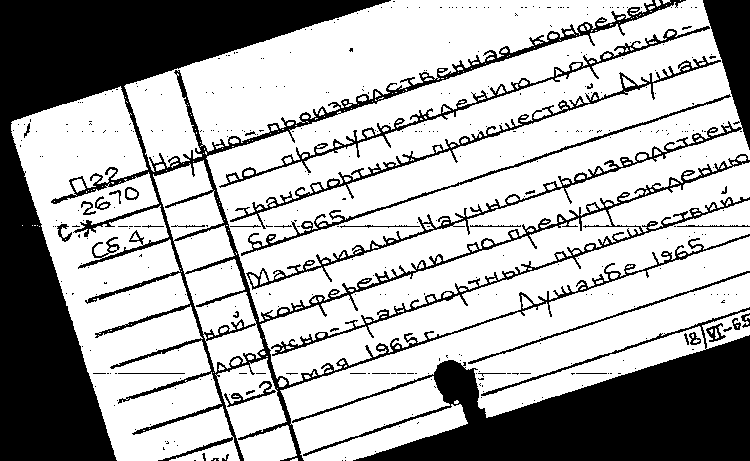 Научно-производственная конферен
П22
по предупреждению дорожно-
2670
транспортных происшествий. Душан-
Сб.4.
бе. 1965.
Материалы Научно-производствен-
ной конференции по предупреждению
дорожно-транспортных происшествий.
19-20 мая 1965 г. Душанбе, 1965
18/VI-65